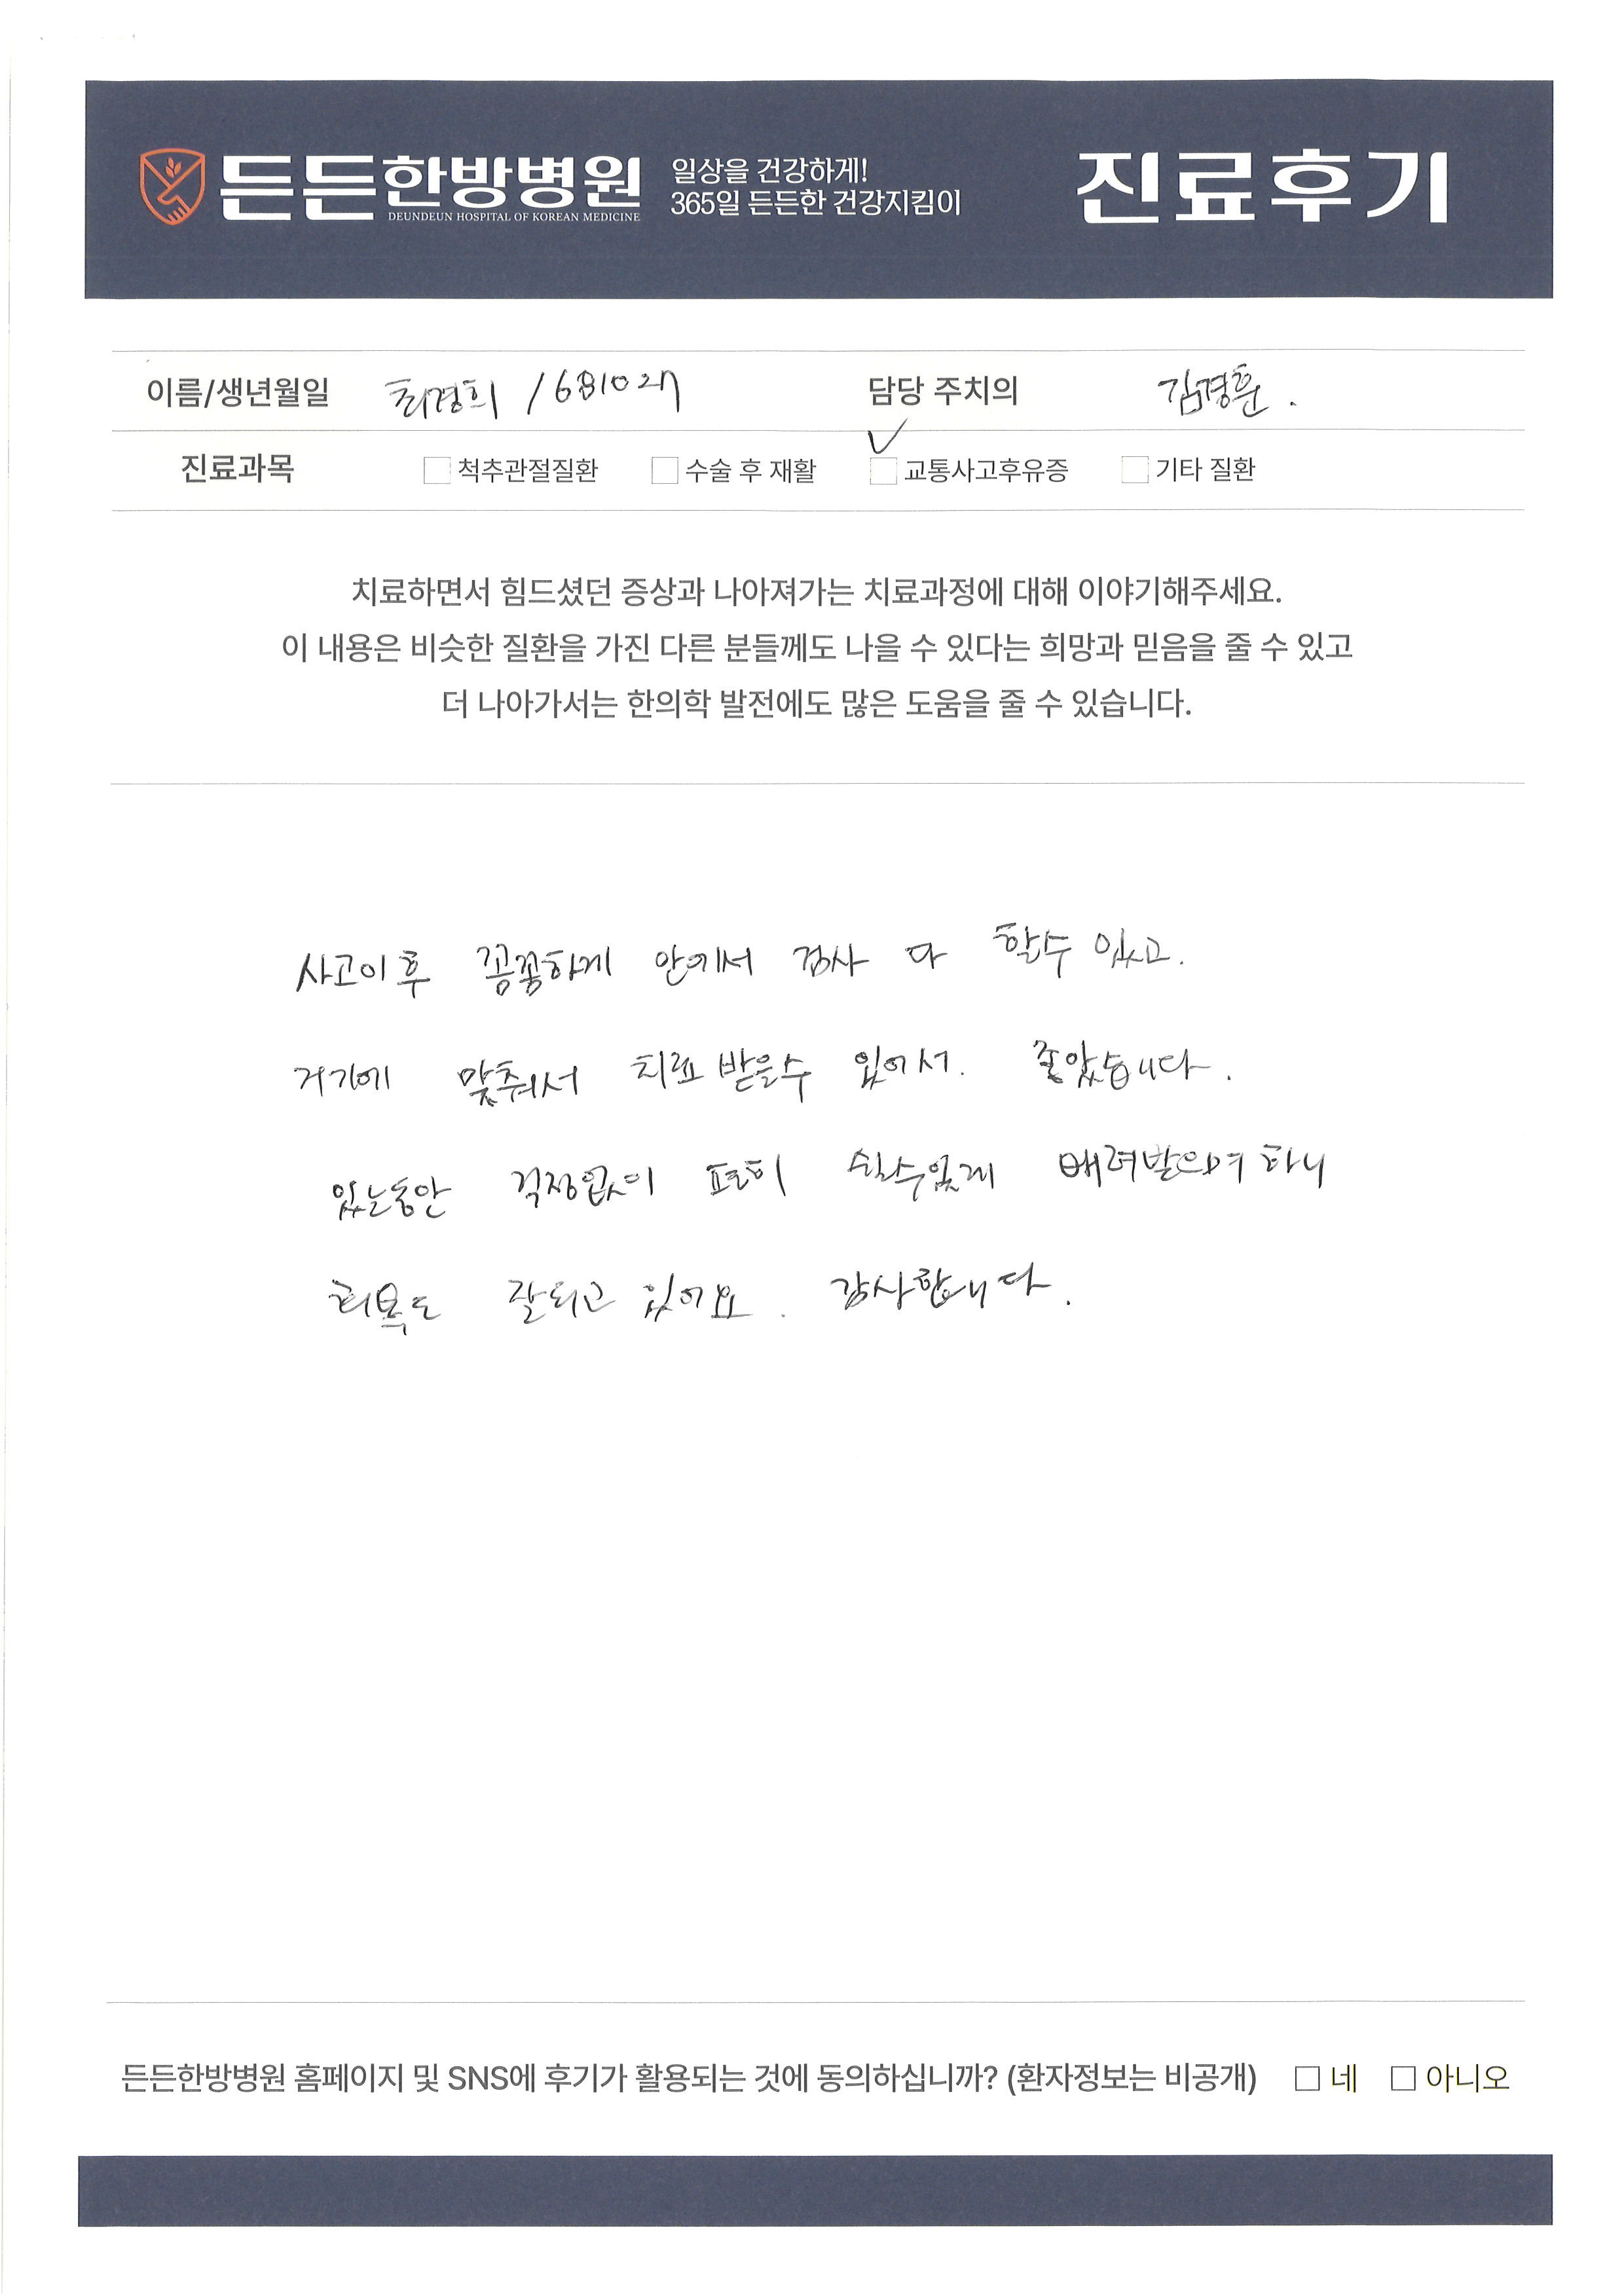 든든한방병원
DEUNDEUN HOSPITAL OF KOREAN MEDICINE
일상을 건강하게!
365일 든든한 건강지킴이
진료후기
이름/생년월일 최경희 / 681027 담당 주치의 김경훈.
진료과목 척추관절질환 수술 후 재활 교통사고후유증 기타 질환
치료하면서 힘드셨던 증상과 나아져가는 치료과정에 대해 이야기해주세요.
이 내용은 비슷한 질환을 가진 다른 분들께도 나을 수 있다는 희망과 믿음을 줄 수 있고
더 나아가서는 한의학 발전에도 많은 도움을 줄 수 있습니다.
사고이후 꼼꼼하게 안에서 검사 다 할수 있고.
거기에 맞춰서 치료 받을수 있어서. 좋았습니다.
있는동안 걱정없이 편히 쉴수있게 배려받으며 하니
회복도 잘되고 있어요. 감사합니다.
든든한방병원 홈페이지 및 SNS에 후기가 활용되는 것에 동의하십니까? (환자정보는 비공개) □ 네 □ 아니오